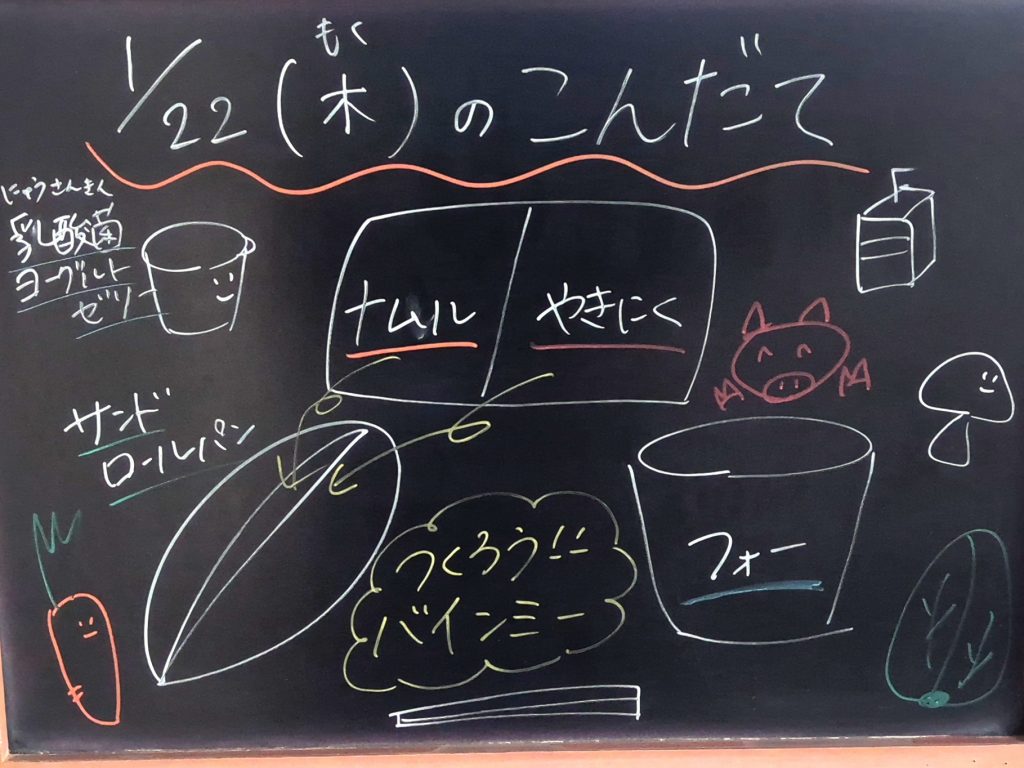 もく
1/22(木)のこんだて
にゅうさんきん
乳酸菌
ヨーグルト
ゼリー
ナムル
やきにく
サンド
ロールパン
つくろう!!
バインミー
フォー